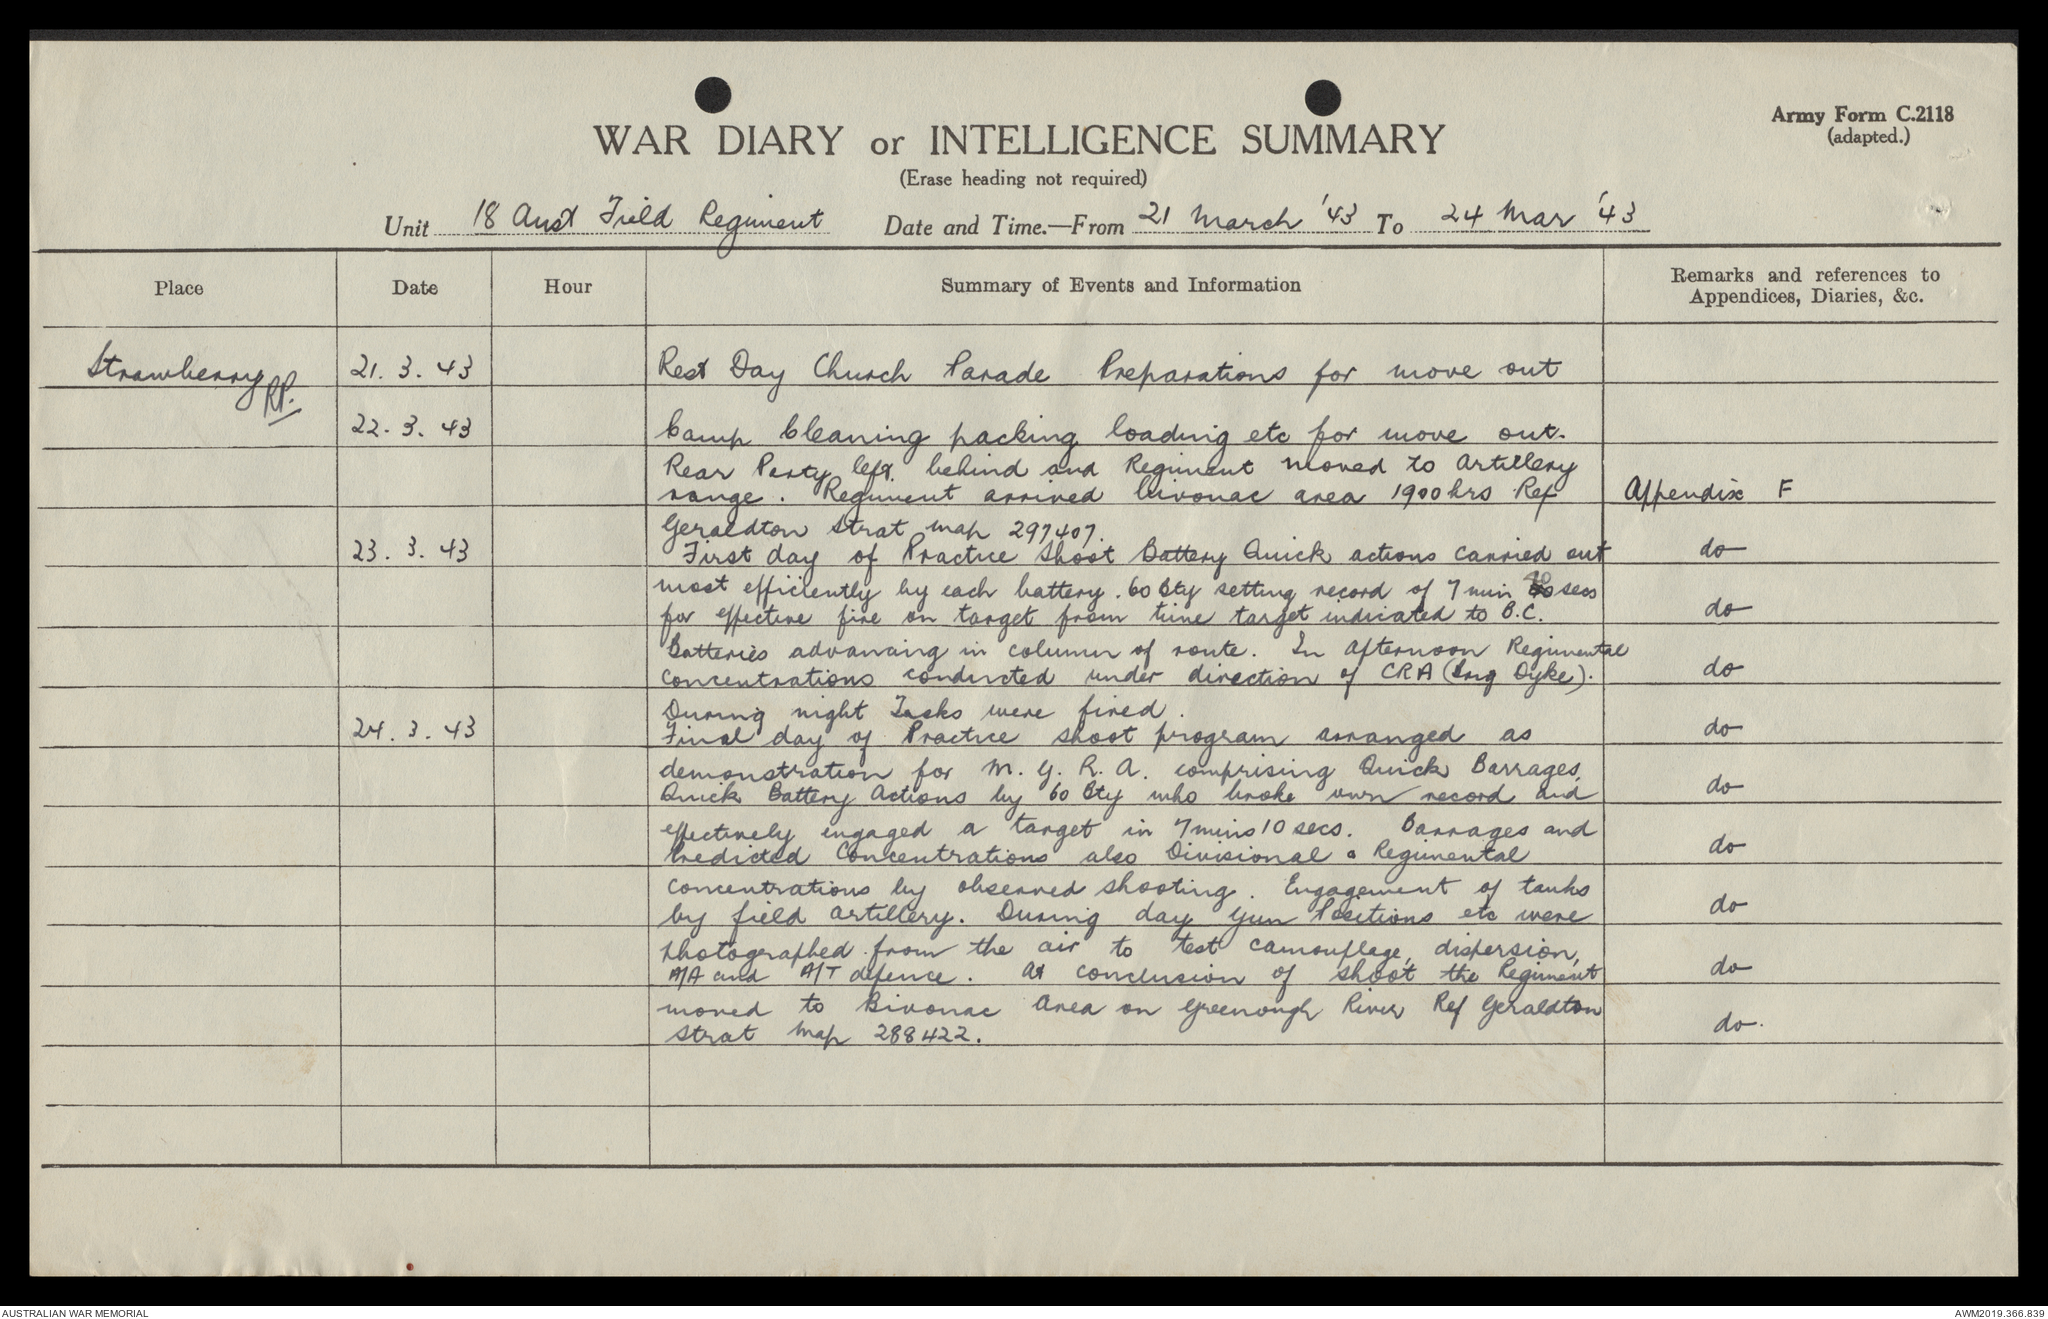 Army Form C.2118
(adapted.)
WAR DIARY or INTELLIGENCE SUMMARY
(Erase heading not required)
Unit 18 Aust Field Regiment Date and Time.—From 21 March '43 To 24 Mar '43
Place Date Hour Summary of Events and Information Remarks and references to Appendices, Diaries, &c.
Strawberry 21. 3. 43 Rest Day Church Parade Preparations for move out
RP.
22. 3. 43 Camp Cleaning packing loading etc for move out.
Rear Party left behind and Regiment moved to Artillery
range. Regiment arrived bivouac area 1900 hrs Ref Appendix F
Geraldton Strat map 297407.
23. 3. 43 First day of Practice Shoot Battery Quick actions carried out do
most efficiently by each battery. 60 Bty setting record of 7 min secs
for effective fire on target from time target indicated to B.C. do
Batteries advancing in column of route. In afternoon Regimental
concentrations conducted under direction of CRA (Brig Dyke). do
During night Tasks were fired.
24. 3. 43 Final day of Practice shoot program arranged as do
demonstration for M. G. R. A. comprising Quick Barrages,
Quick Battery Actions by 60 Bty who broke own record and do
effectively engaged a target in 7 mins 10 secs. Barrages and
Predicted Concentrations also Divisional & Regimental do
concentrations by observed shooting. Engagement of tanks
by field artillery. During day Gun Positions etc were do
photographed from the air to test camouflage, dispersion,
A/A and A/T defence. At conclusion of shoot the Regiment do
moved to Bivouac Area on Greenough River Ref Geraldton
Strat Map 288422. do.
AUSTRALIAN WAR MEMORIAL AWM2019.366.839